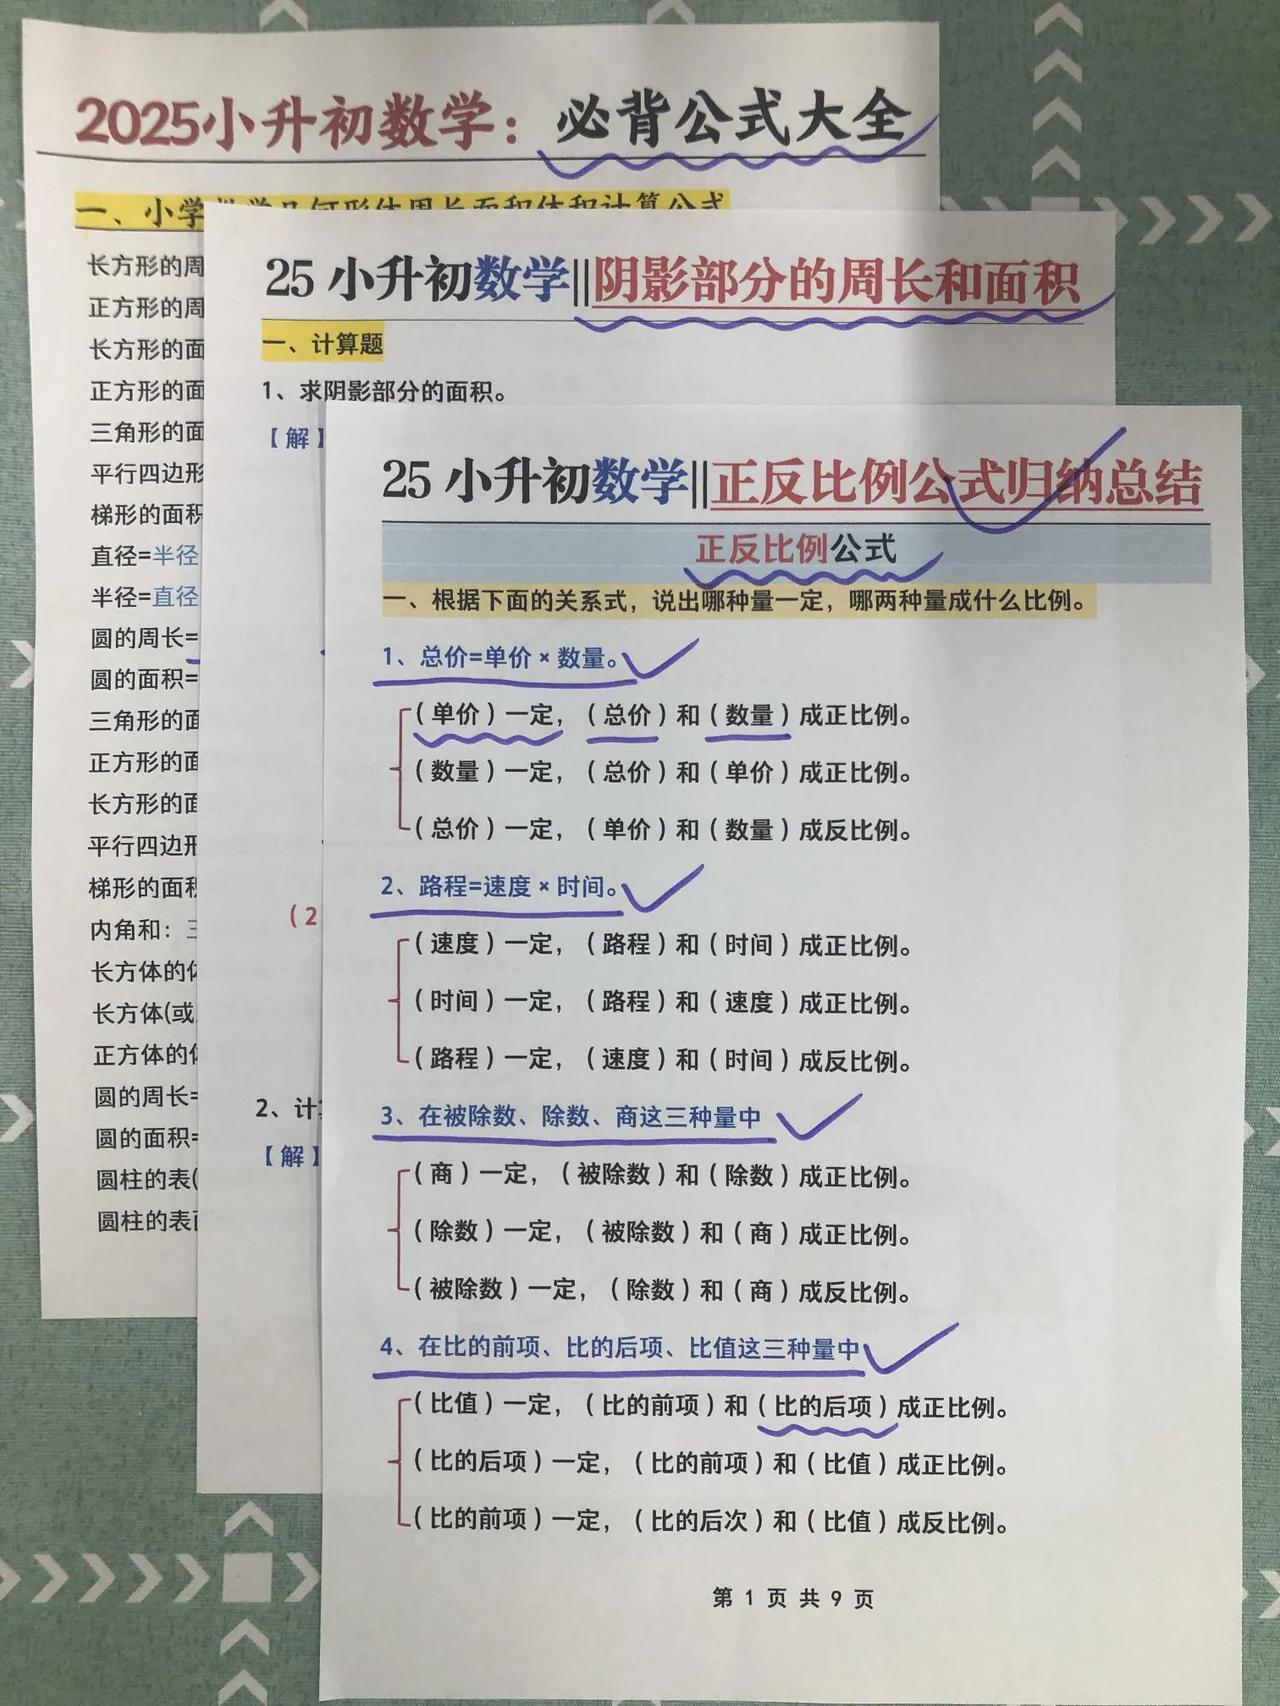 2025小升初数学：必背公式大全
一、小学数学几何形体周长面积体积计算公式
长方形的周
正方形的周
长方形的面
正方形的面
三角形的面
平行四边形
梯形的面积
直径=半径
半径=直径
圆的周长=
圆的面积=
三角形的面
正方形的面
长方形的面
平行四边形
梯形的面积
内角和：三
长方体的体
长方体(或
正方体的体
圆的周长=
圆的面积=
圆柱的表(
圆柱的表面
25 小升初数学||阴影部分的周长和面积
一、计算题
1、求阴影部分的面积。
【解】
（2
2、计
【解】
25 小升初数学||正反比例公式归纳总结
正反比例公式
一、根据下面的关系式，说出哪种量一定，哪两种量成什么比例。
1、总价=单价×数量。
（单价）一定，（总价）和（数量）成正比例。
（数量）一定，（总价）和（单价）成正比例。
（总价）一定，（单价）和（数量）成反比例。
2、路程=速度×时间。
（速度）一定，（路程）和（时间）成正比例。
（时间）一定，（路程）和（速度）成正比例。
（路程）一定，（速度）和（时间）成反比例。
3、在被除数、除数、商这三种量中
（商）一定，（被除数）和（除数）成正比例。
（除数）一定，（被除数）和（商）成正比例。
（被除数）一定，（除数）和（商）成反比例。
4、在比的前项、比的后项、比值这三种量中
（比值）一定，（比的前项）和（比的后项）成正比例。
（比的后项）一定，（比的前项）和（比值）成正比例。
（比的前项）一定，（比的后次）和（比值）成反比例。
第 1 页 共 9 页